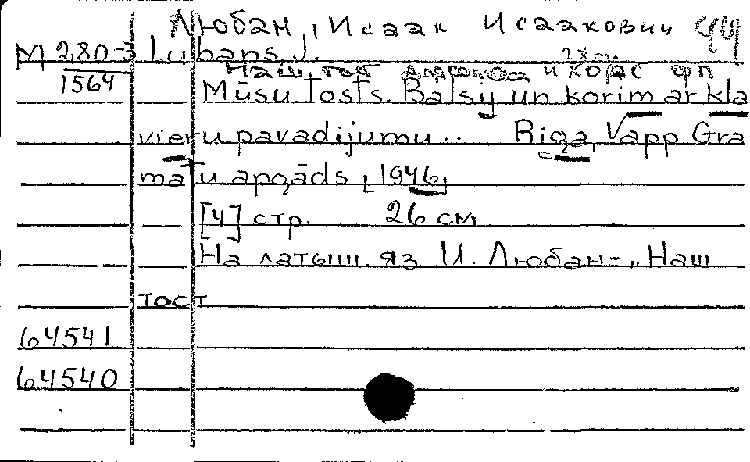 Любан, Исаак Исаакович 44
М 280-3 Lubans, J.
1564 Наш тост и хора с фп
Mūsu tosts. Balsij un korim ar kla
vieru pavadijumu.. Riga, Vapp Gra
matu apgāds, [1946]
[4] стр. 26 см
На латыш. яз И. Любан-, Наш
тост
64541
64540